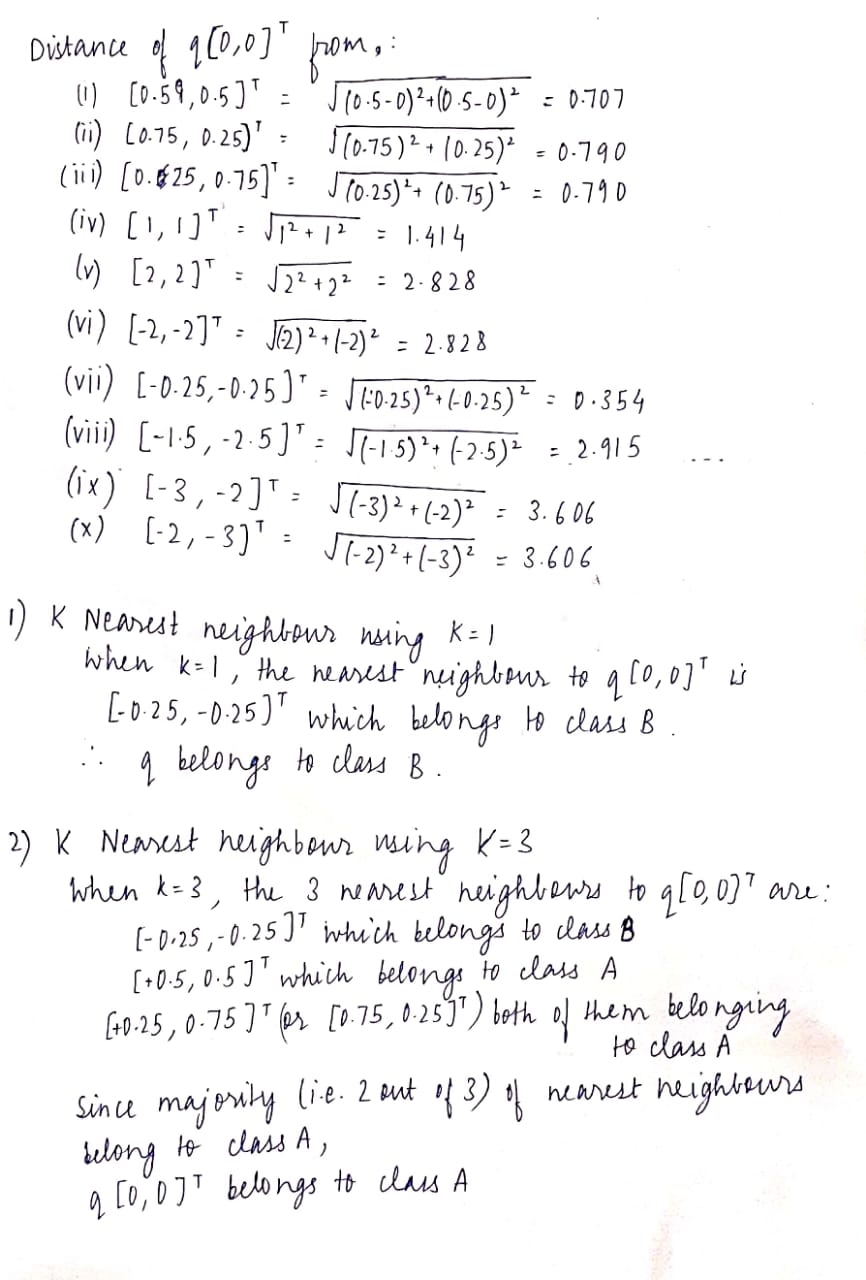 Distance of q[0,0]ᵀ from,:
(i) [0.59,0.5]ᵀ = √(0.5-0)²+(0.5-0)² = 0.707
(ii) [0.75, 0.25)ᵀ = √(0.75)² + (0.25)² = 0.790
(iii) [0.25, 0.75]ᵀ = √(0.25)²+ (0.75)² = 0.790
(iv) [1, 1]ᵀ = √1² + 1² = 1.414
(v) [2, 2]ᵀ = √2² + 2² = 2.828
(vi) [-2, -2]ᵀ = √(2)² + (-2)² = 2.828
(vii) [-0.25, -0.25]ᵀ = √(-0.25)² + (-0.25)² = 0.354
(viii) [-1.5, -2.5]ᵀ = √(-1.5)² + (-2.5)² = 2.915 ...
(ix) [-3, -2]ᵀ = √(-3)² + (-2)² = 3.606
(x) [-2, -3]ᵀ = √(-2)² + (-3)² = 3.606
1) K Nearest neighbour using K=1
When k=1, the nearest neighbour to q[0,0]ᵀ is
[-0.25, -0.25]ᵀ which belongs to class B.
∴ q belongs to class B.
2) K Nearest neighbour using K=3
When k=3, the 3 nearest neighbours to q[0,0]ᵀ are:
[-0.25, -0.25]ᵀ which belongs to class B
[+0.5, 0.5]ᵀ which belongs to class A
[+0.25, 0.75]ᵀ (or [0.75, 0.25]ᵀ) both of them belonging
to class A
Since majority (i.e. 2 out of 3) of nearest neighbours
belong to class A,
q [0,0]ᵀ belongs to class A